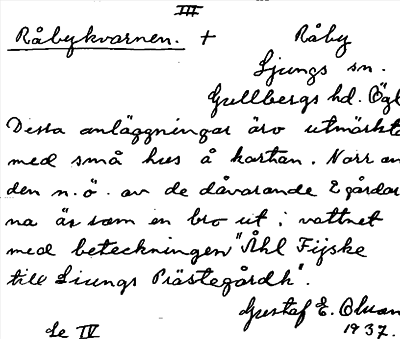 III
Råbykvarnen. + Råby
Ljungs sn.
Gullbergs hd. Ögl
Dessa anläggningar äro utmärkta
med små hus å kartan. Norr om
den n.ö. av de dåvarande 2 gårdar
na är som en bro ut i vattnet
med beteckningen "Åhl Fijske
till Liungs Prästegårdh".
Gustaf E. Olsson
1937.
Se IV